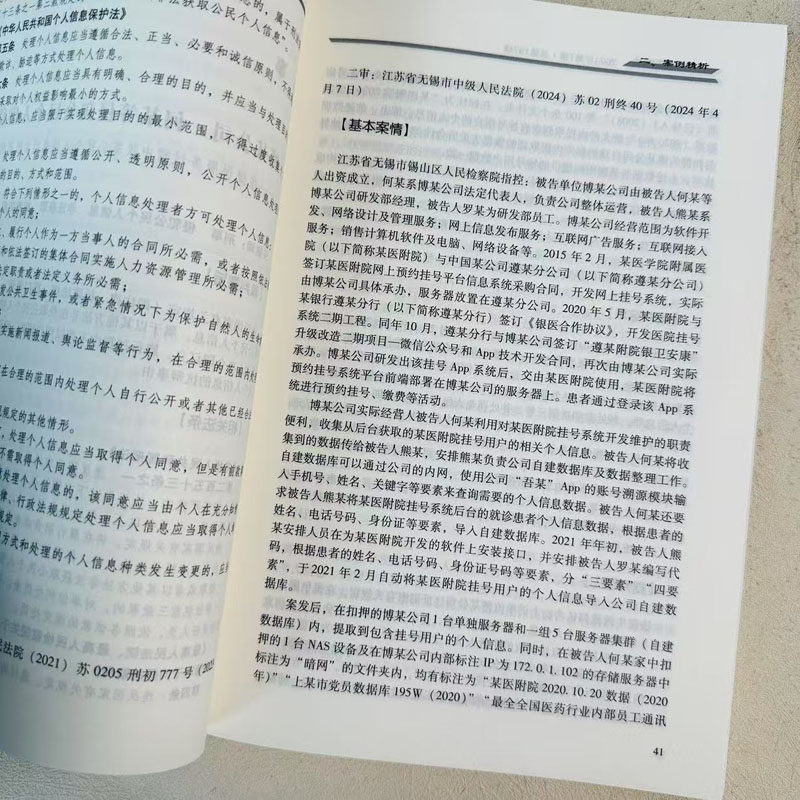 十三条之一第二款规定
《中华人民共和国个人信息保护法》
五条 处理个人信息应当遵循合法、正当、必要和诚信原则，不得
欺诈、胁迫等方式处理个人信息。
条 处理个人信息应当具有明确、合理的目的，并应当与处理目
采取对个人权益影响最小的方式。
个人信息，应当限于实现处理目的的最小范围，不得过度收集个
处理个人信息应当遵循公开、透明原则，公开个人信息处
的目的、方式和范围。
符合下列情形之一的，个人信息处理者方可处理个人信息：
个人的同意；
、履行个人作为一方当事人的合同所必需，或者按照依法
和依法签订的集体合同实施人力资源管理所必需；
法定职责或者法定义务所必需；
发公共卫生事件，或者紧急情况下为保护自然人的生命
实施新闻报道、舆论监督等行为，在合理的范围内处
在合理的范围内处理个人自行公开或者其他已经合
规规定的其他情形。
，处理个人信息应当取得个人同意，但是有前款
不需取得个人同意。
个人信息的，该同意应当由个人在充分知
律、行政法规规定处理个人信息应当取得个人
规定。
方式和处理的个人信息种类发生变更的，应当
民法院（2021）苏 0205 刑初 777 号（202
法获取公民个人信息”。
二、案例精析
二审：江苏省无锡市中级人民法院（2024）苏 02 刑终 40 号（2024 年 4
月 7 日）
【基本案情】
江苏省无锡市锡山区人民检察院指控：被告单位博某公司由被告人何某等
人出资成立，何某系博某公司法定代表人，负责公司整体运营，被告人熊某系
博某公司研发部经理，被告人罗某为研发部员工。博某公司经营范围为软件开
发、网络设计及管理服务；网上信息发布服务；互联网广告服务；互联网接入
服务；销售计算机软件及电脑、网络设备等。2015 年 2 月，某医学院附属医
院（以下简称某医附院）与中国某公司遵某分公司（以下简称遵某分公司）
签订某医附院网上预约挂号平台信息系统采购合同，开发网上挂号系统，实际
由博某公司具体承办，服务器放置在遵某分公司。2020 年 5 月，某医附院与
某银行遵某分行（以下简称遵某分行）签订《银医合作协议》，开发医院挂号
系统二期工程。同年 10 月，遵某分行与博某公司签订“遵某附院银卫安康”
升级改造二期项目—微信公众号和 App 技术开发合同，再次由博某公司实际
承办。博某公司研发出该挂号 App 系统后，交由某医附院使用，某医附院将
预约挂号系统平台前端部署在博某公司的服务器上。患者通过登录该 App 系
统进行预约挂号、缴费等活动。
博某公司实际经营人被告人何某利用对某医附院挂号系统开发维护的职责
便利，收集从后台获取的某医附院挂号用户的相关个人信息。被告人何某将收
集到的数据传给被告人熊某，安排熊某负责公司自建数据库及数据整理工作。
自建数据库可以通过公司的内网，使用公司“吾某”App 的账号溯源模块输
入手机号、姓名、关键字等要素来查询需要的个人信息数据。被告人何某还要
求被告人熊某将某医附院挂号系统后台的就诊患者个人信息数据，根据患者的
姓名、电话号码、身份证等要素，导入自建数据库。2021 年年初，被告人熊
某安排人员在为某医附院开发的软件上安装接口，并安排被告人罗某编写代
码，根据患者的姓名、电话号码、身份证号码等要素，分“三要素”“四要
素”，于 2021 年 2 月自动将某医附院挂号用户的个人信息导入公司自建数
据库。
案发后，在扣押的博某公司 1 台单独服务器和一组 5 台服务器集群（自建
数据库）内，提取到包含挂号用户的个人信息。同时，在被告人何某家中扣
押的 1 台 NAS 设备及在博某公司内部标注 IP 为 172.0.1.102 的存储服务器中
标注为“暗网”的文件夹内，均有标注为“某医附院 2020.10.20 数据（2020
年）”“上某市党员数据库 195W（2020）”“最全全国医药行业内部员工通讯
41